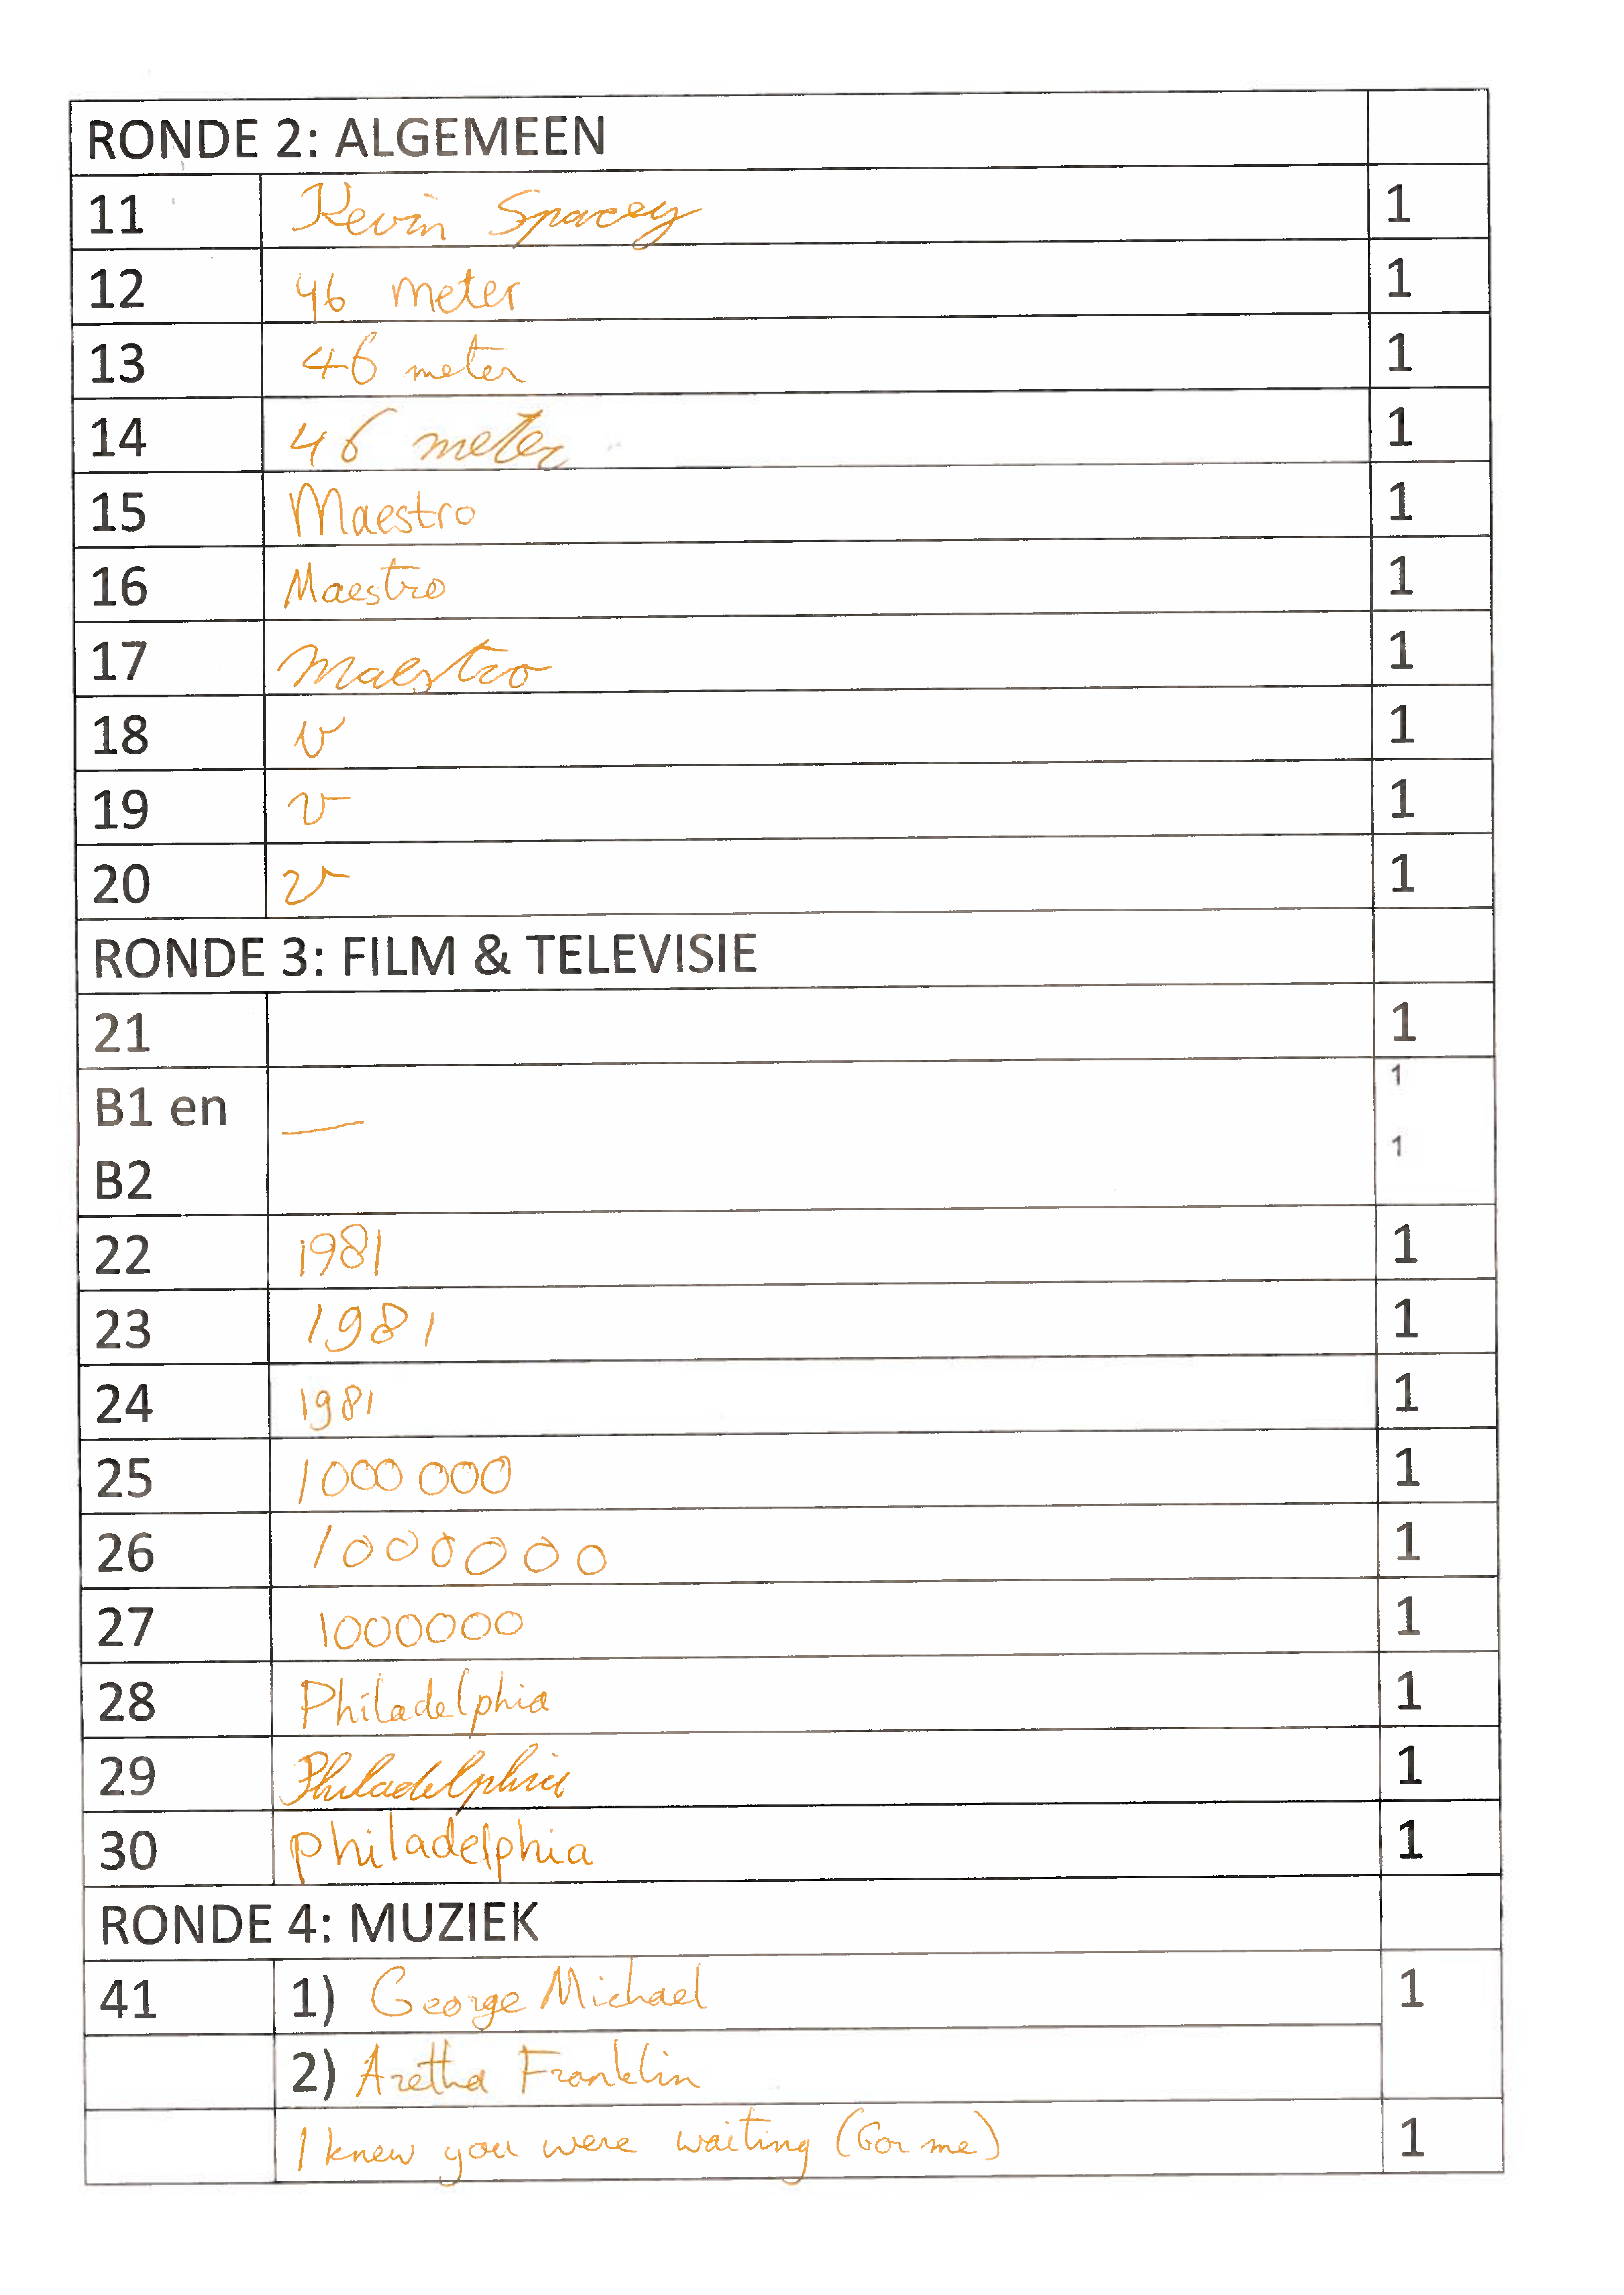 RONDE 2: ALGEMEEN
11 Kevin Spacey 1
12 46 meter 1
13 46 meter 1
14 46 meter 1
15 Maestro 1
16 Maestro 1
17 maestro 1
18 v 1
19 v 1
20 v 1
RONDE 3: FILM & TELEVISIE
21 1
B1 en — 1
B2 1
22 1981 1
23 1981 1
24 1981 1
25 1000 000 1
26 1000000 1
27 1000000 1
28 Philadelphia 1
29 Philadelphia 1
30 philadelphia 1
RONDE 4: MUZIEK
41 1) George Michael 1
2) Aretha Franklin
I knew you were waiting (for me) 1